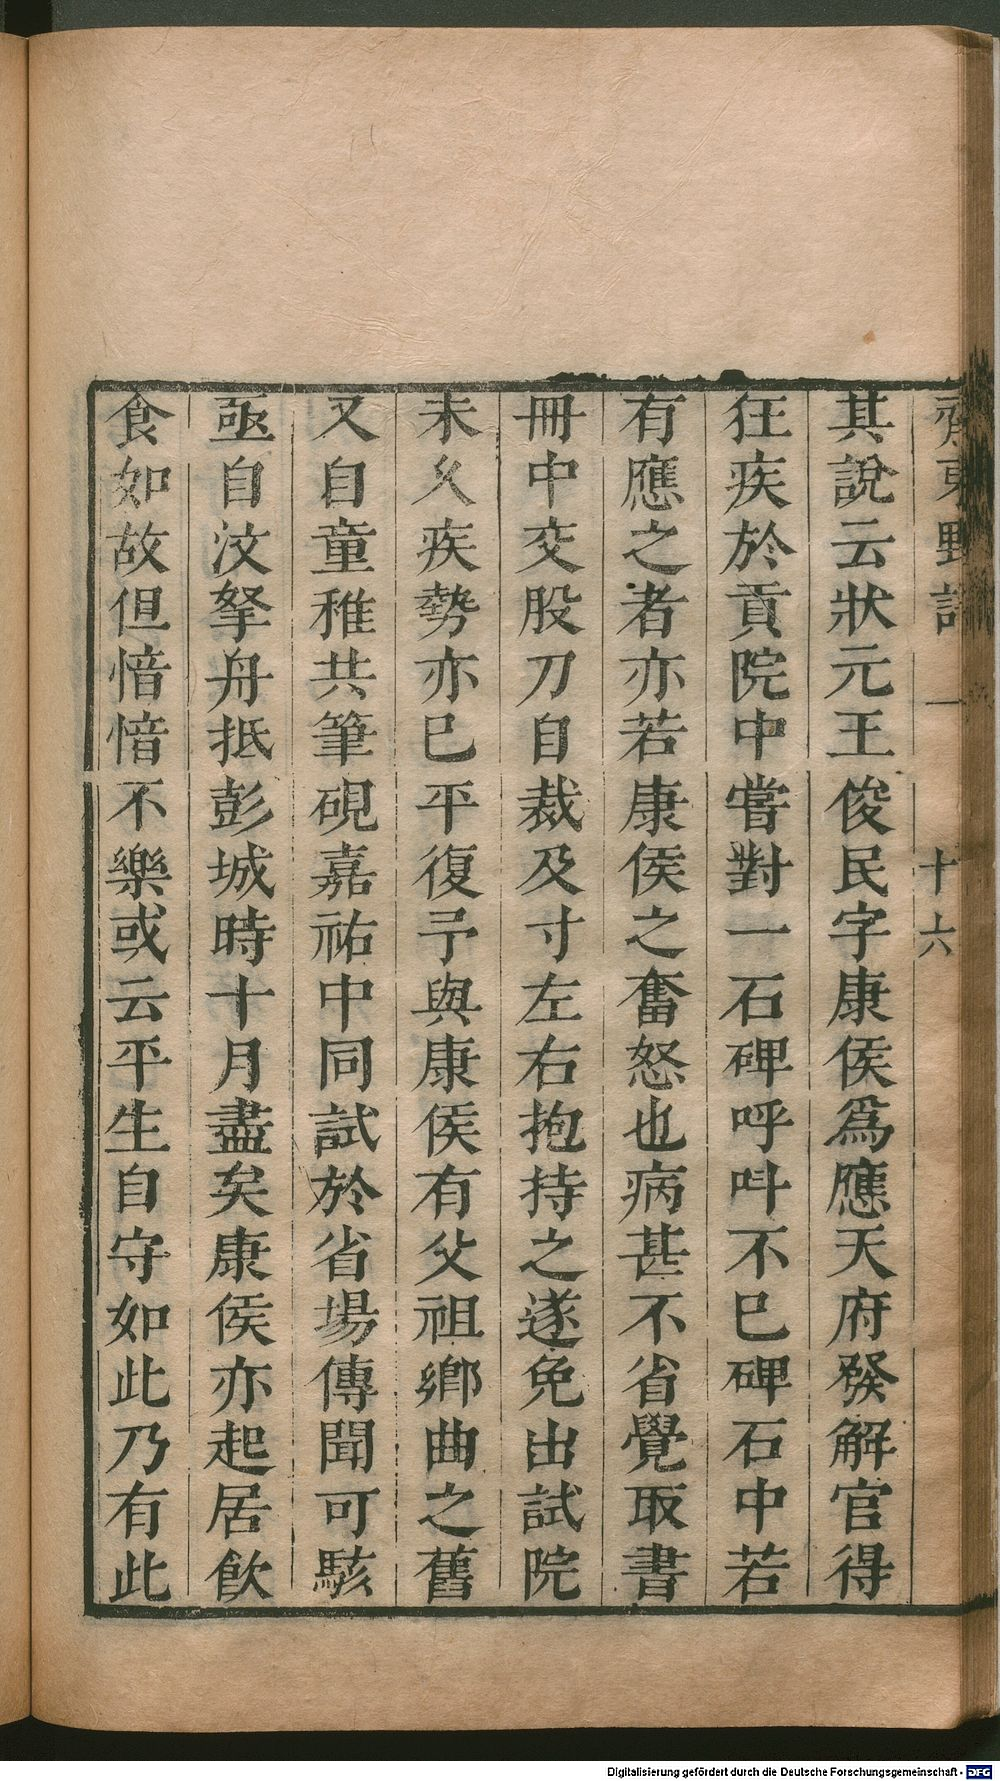 齊東野語 一 十六
其說云狀元王俊民字康侯爲應天府發解官得
狂疾於貢院中嘗對一石碑呼呌不已碑石中若
有應之者亦若康侯之奮怒也病甚不省覺取書
冊中交股刀自裁及寸左右抱持之遂免出試院
未久疾勢亦已平復予與康侯有父祖鄉曲之舊
又自童稚共筆硯嘉祐中同試於省場傳聞可駭
亟自汶拏舟抵彭城時十月盡矣康侯亦起居飲
食如故但愔愔不樂或云平生自守如此乃有此
Digitalisierung gefördert durch die Deutsche Forschungsgemeinschaft - DFG